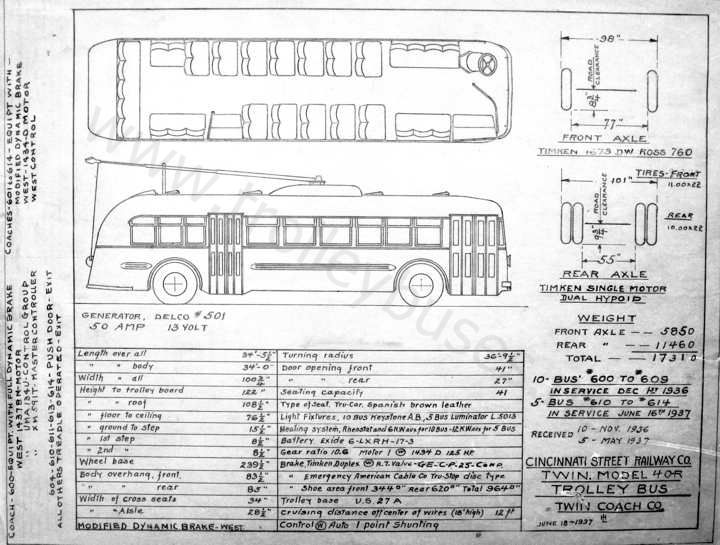 COACH-600-EQUIPT. WITH FULL DYNAMIC BRAKE
WEST 1437BH-MOTOR
" UNIT 1354U-CONTROL GROUP
" XM 591T-MASTER CONTROLLER
604-610-611-613-614-PUSH DOOR-EXIT
ALL OTHERS TREADLE OPERATED-EXIT
COACHES-601 to 614-EQUIPT WITH-
MODIFIED DYNAMIC BRAKE
WEST-1434-D MOTOR
WEST CONTROL
www.trolleybuses
98"
ROAD CLEARANCE
8 3/4"
77"
FRONT AXLE
TIMKEN 1673 DW ROSS 760
TIRES-FRONT
11.00x22
101"
ROAD CLEARANCE
REAR
10.00x22
55"
REAR AXLE
TIMKEN SINGLE MOTOR
DUAL HYPOID
WEIGHT
FRONT AXLE -- 5850
REAR " -- 11460
TOTAL -- 17310
GENERATOR, DELCO #501
50 AMP 13 VOLT
Length over all 34'-5½"
" " body 34'-0"
Width " all 100¾"
Height to trolley board 122"
" " roof 108½"
" floor to ceiling 76½"
" ground to step 15½"
" 1st step 8½"
" 2nd " 8½"
Wheel base 239½"
Body overhang, front 83½"
" " rear 85"
Width of cross seats 34"
" " Aisle 28½"
MODIFIED DYNAMIC BRAKE-WEST.
Turning radius 36'-9½"
Door opening front 41"
" " rear 27"
Seating capacity 41
Type of Seat, Tru-Car. Spanish brown leather
Light Fixtures, 10 Bus Keystone AB, 5 Bus Luminator L5013
Heating system, Rheostat and 6 KW ars for 10 Bus-12 KW ars for 5 Bus
Battery Exide 6-LXRH-17-3
Gear ratio 10.6 Motor 1 W 1434 D 125 HP.
Brake, Timken Duplex. W A.T. Valve-G.E-C.P. 25-Comp.
" Emergency American Cable Co Tru-Stop disc type
" Shoe area front 344 Rear 620 Total 964
Trolley base U.S. 27 A
Cruising distance off center of wires (18' high) 12 ft
Control W Auto 1 point Shunting
10-BUS' #600 TO #609
IN SERVICE DEC 1st 1936
5-BUS #610 TO #614
IN SERVICE JUNE 16th 1937
RECEIVED 10-NOV. 1936
5-MAY 1937
CINCINNATI STREET RAILWAY CO.
TWIN MODEL 40R
TROLLEY BUS
TWIN COACH CO.
JUNE 18-1937